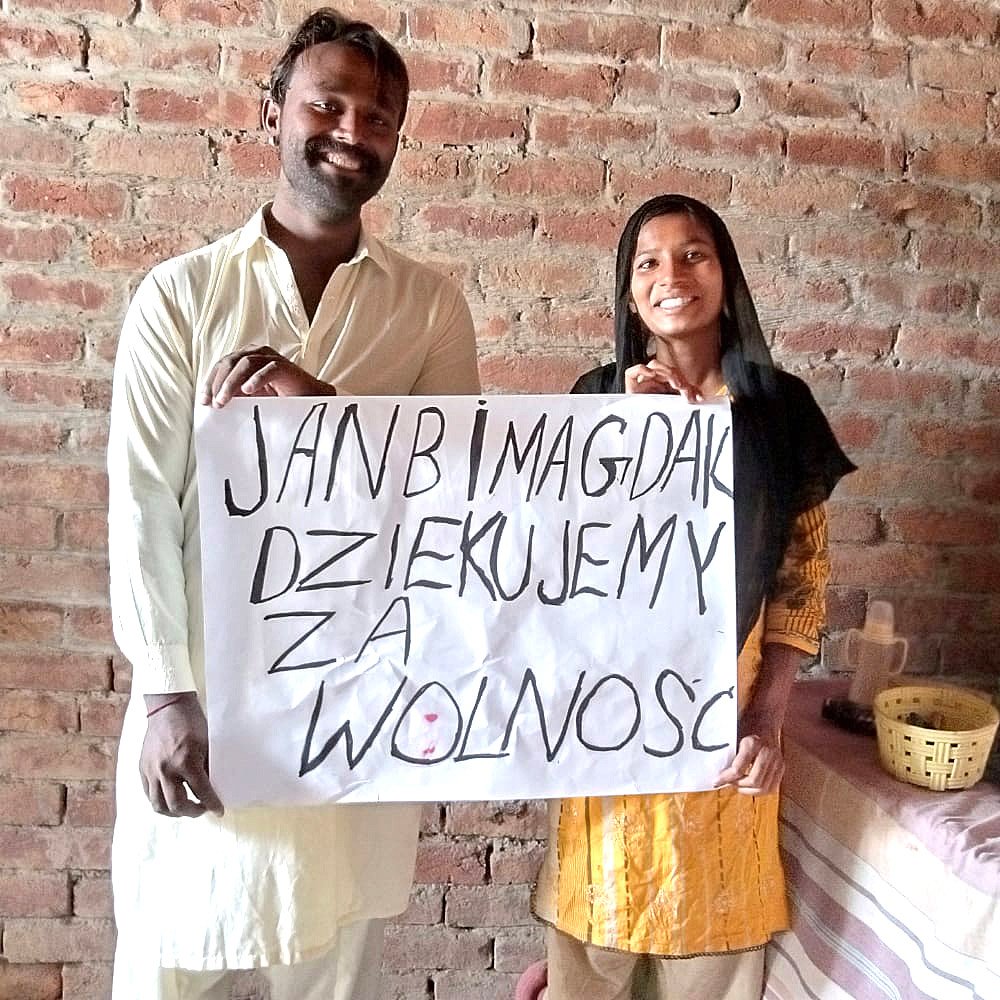 JAN B i MAGDA K
DZIEKUJEMY
ZA
WOLNOŚĆ